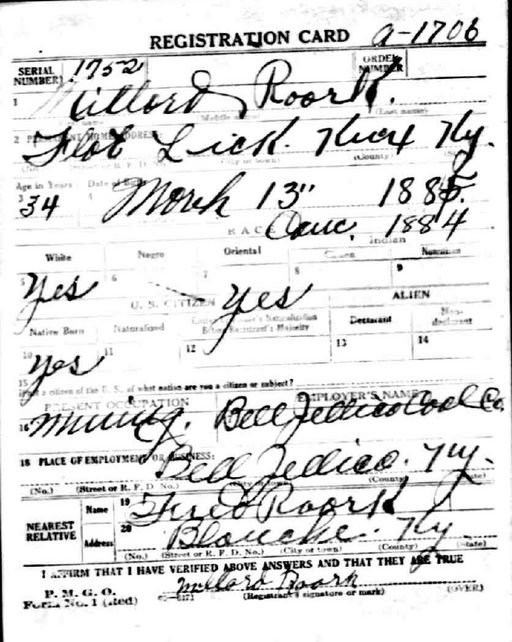 REGISTRATION CARD a-1706
SERIAL NUMBER 1752 ORDER NUMBER
1 Millard Roark.
2 PERMANENT HOME ADDRESS:
Flat Lick. Knox Ky.
Age in Years Date of Birth
3 34 4 March 13" 1885.
RACE Cauc, 1884
White Negro Oriental Indian
Citizen Noncitizen
5 Yes 6 7 Yes 8 9
U. S. CITIZEN ALIEN
Native Born Naturalized Citizen by Father's Naturalization Before Registrant's Majority Declarant Non-declarant
10 Yes 11 12 13 14
15 If not a citizen of the U. S., of what nation are you a citizen or subject?
PRESENT OCCUPATION EMPLOYER'S NAME
16 Mining. Bell Jellico Coal Co.
18 PLACE OF EMPLOYMENT OR BUSINESS:
Bell Jellico. Ky.
(No.) (Street or R. F. D. No.) (City or town) (County) (State)
NEAREST RELATIVE Name 19 Fred Roark
Address 20 Blanche. Ky
(No.) (Street or R. F. D. No.) (City or town) (County) (State)
I AFFIRM THAT I HAVE VERIFIED ABOVE ANSWERS AND THAT THEY ARE TRUE
P. M. G. O.
Form No. 1 (Red) Millard Roark
(Registrant's signature or mark) (OVER)